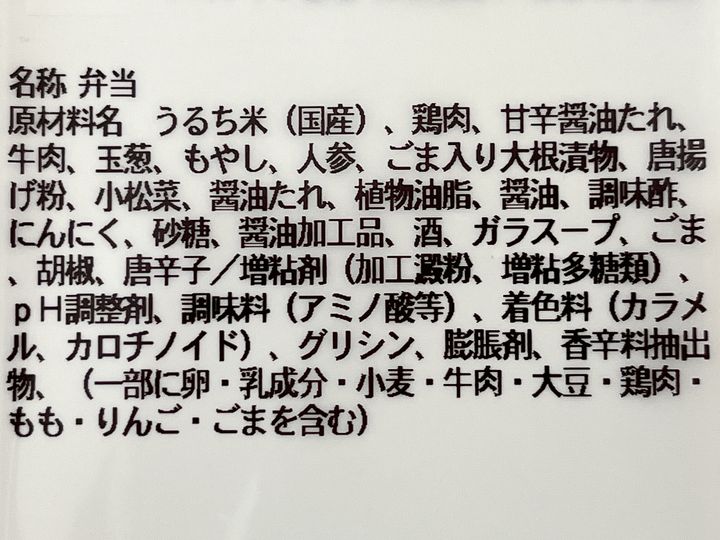 名称 弁当
原材料名　うるち米（国産）、鶏肉、甘辛醤油たれ、
牛肉、玉葱、もやし、人参、ごま入り大根漬物、唐揚
げ粉、小松菜、醤油たれ、植物油脂、醤油、調味酢、
にんにく、砂糖、醤油加工品、酒、ガラスープ、ごま
、胡椒、唐辛子／増粘剤（加工澱粉、増粘多糖類）、
ｐＨ調整剤、調味料（アミノ酸等）、着色料（カラメ
ル、カロチノイド）、グリシン、膨脹剤、香辛料抽出
物、（一部に卵・乳成分・小麦・牛肉・大豆・鶏肉・
もも・りんご・ごまを含む）